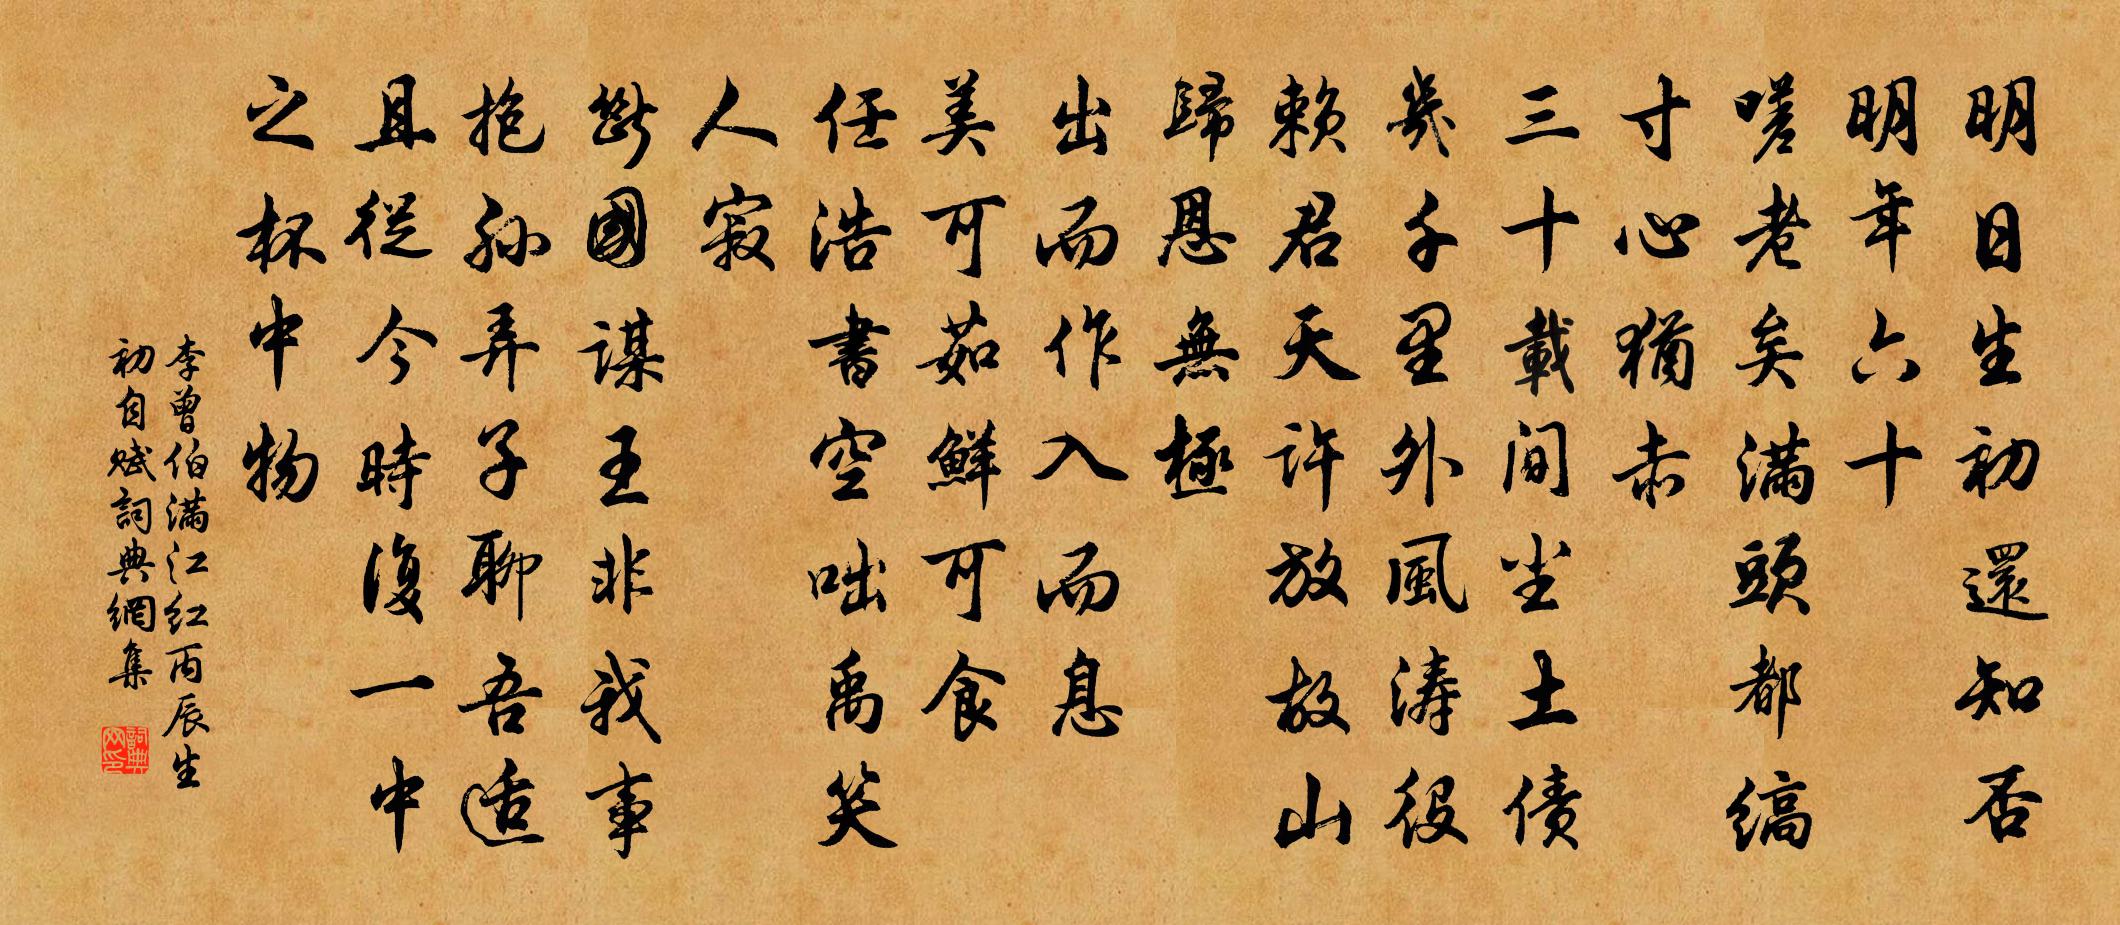 明日生初還知否
明年六十
嗟老矣滿頭都縞
寸心猶赤
三十載間尘土債
幾千里外風濤役
賴君天許放故山
歸恩無極
出而作入而息
美可茹鮮可食
任浩書空咄禹笑
人寂
斷國謀王非我事
抱孫弄子聊吾适
且從今時復一中
之杯中物
李曾伯滿江紅丙辰生
初自賦詞典網集
詞典网印